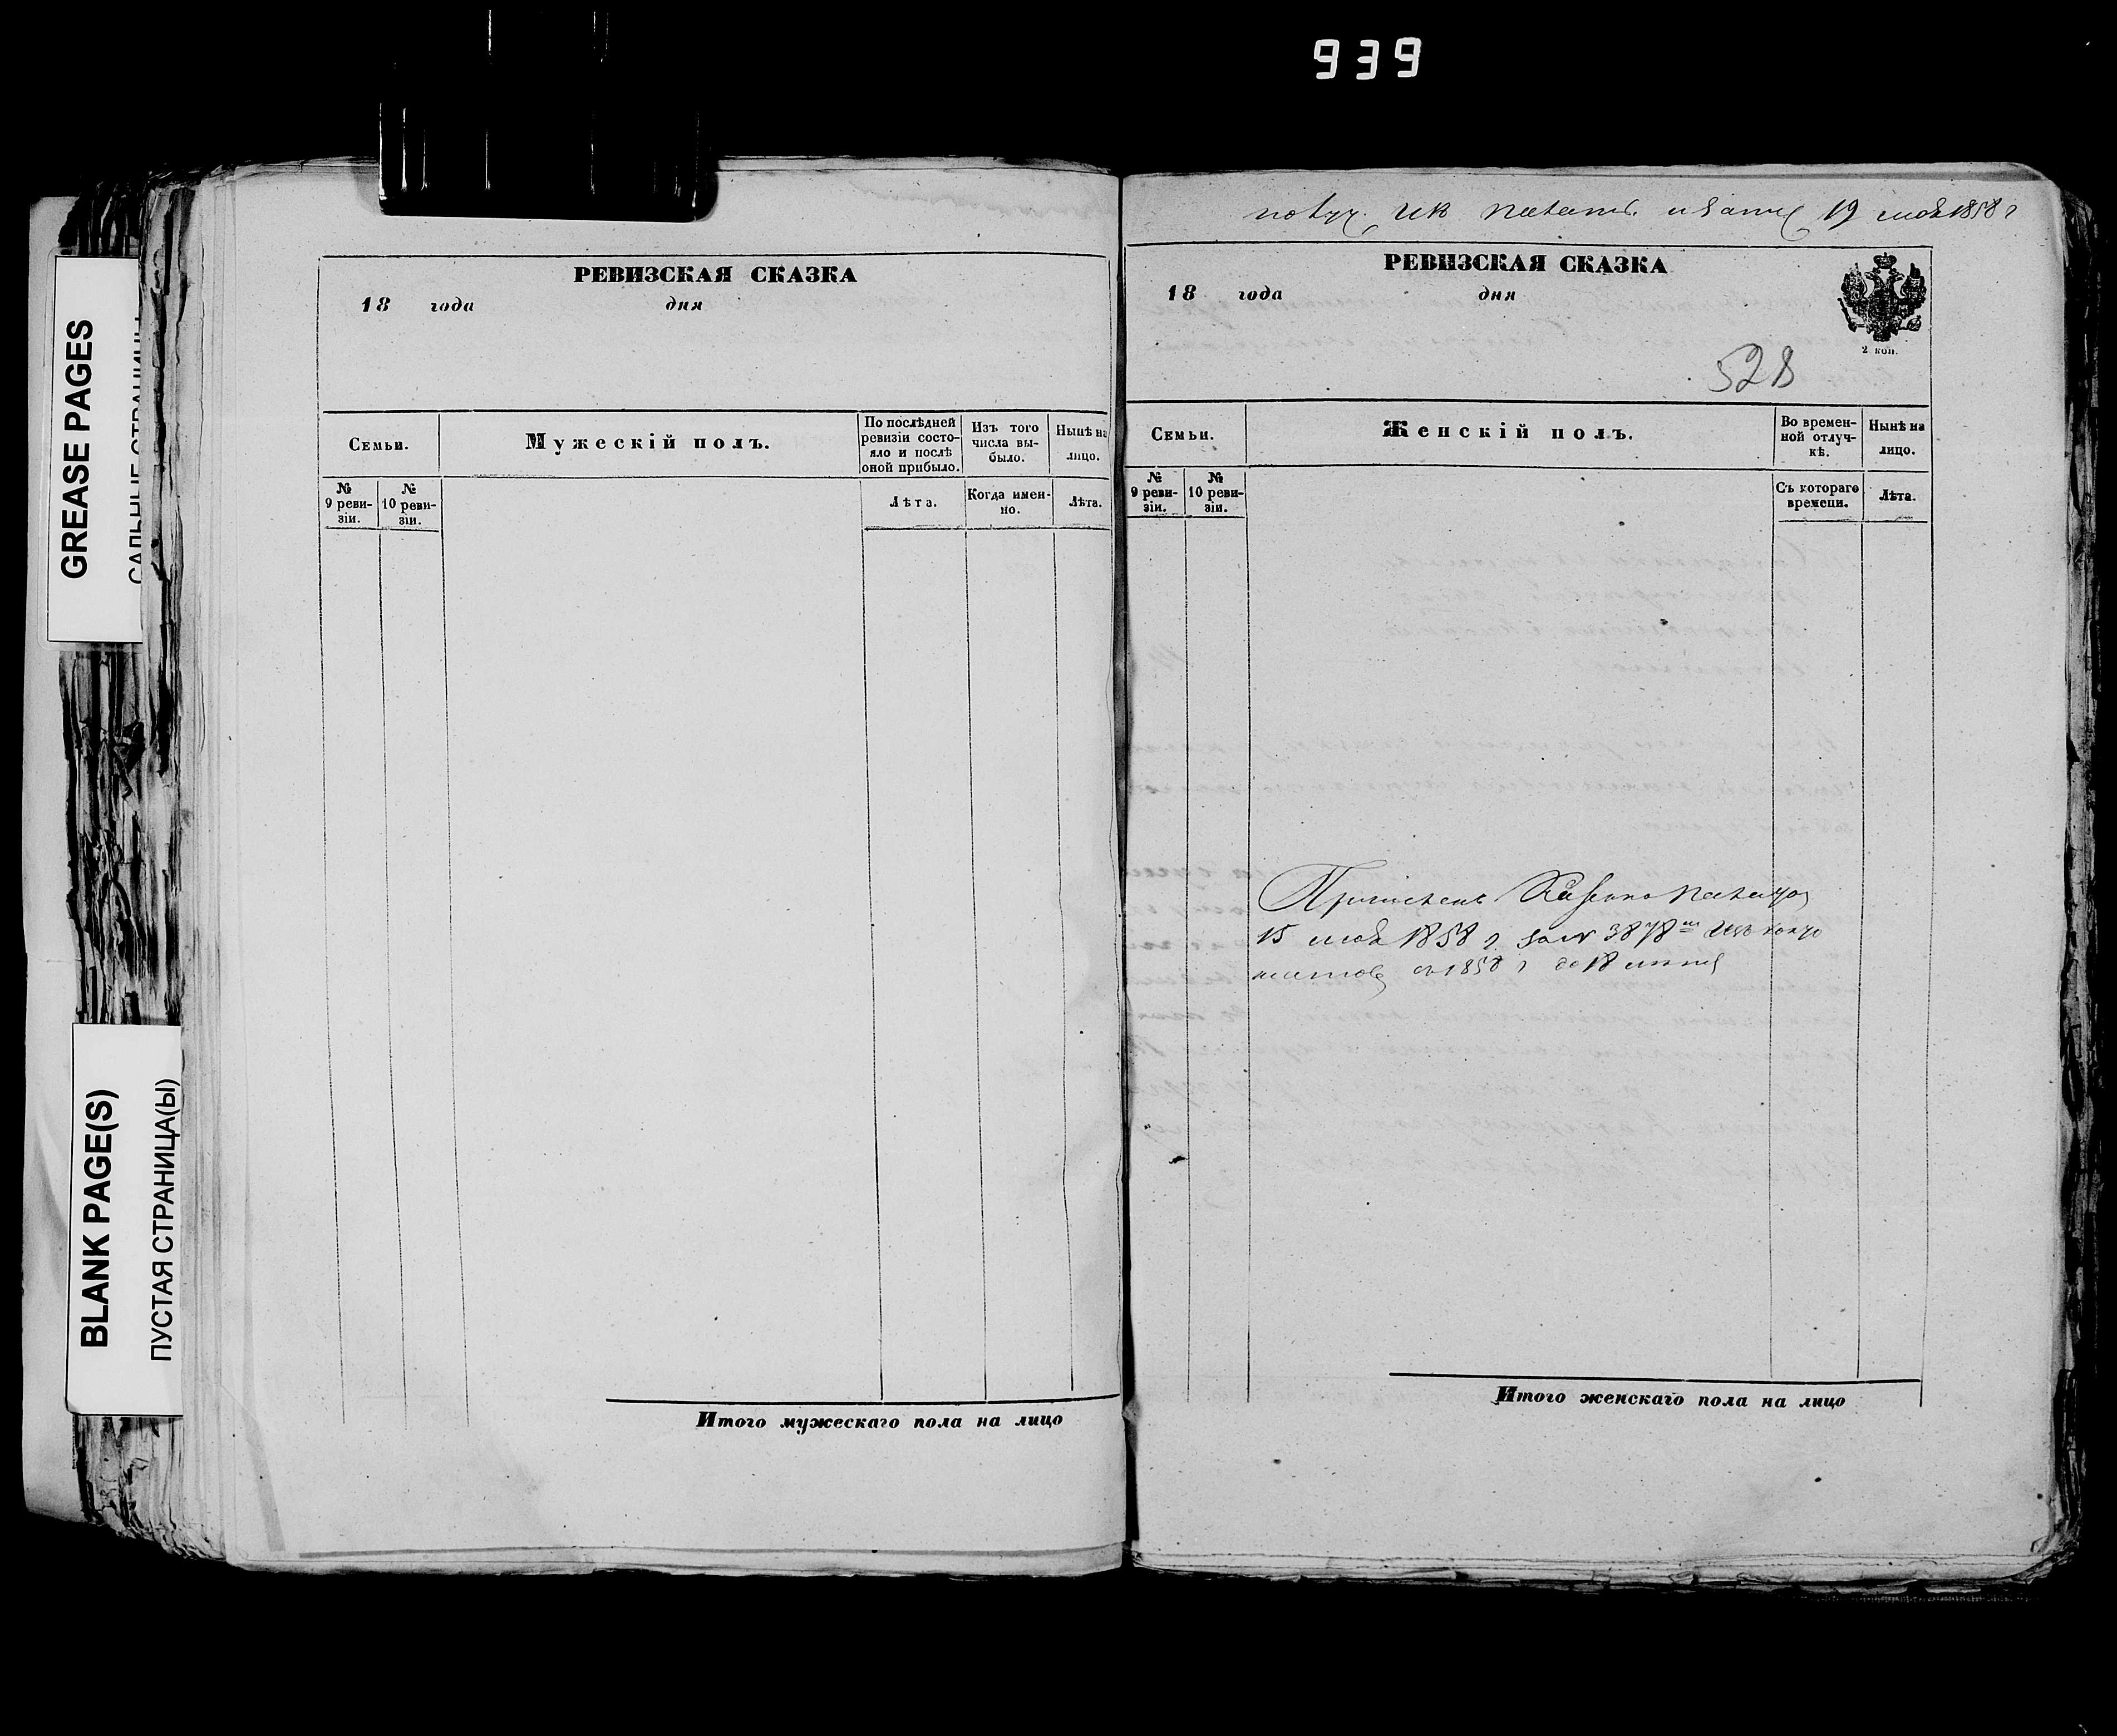 939
GREASE PAGES
САЛЬНЫЕ СТРАНИЦЫ
BLANK PAGE(S)
ПУСТАЯ СТРАНИЦА(Ы)
РЕВИЗСКАЯ СКАЗКА
18 года дня
Семьи.
Мужескій полъ.
По послѣдней
ревизіи состо-
яло и послѣ
оной прибыло.
Изъ того
числа вы-
было.
Нынѣ на
лицо.
№
9 реви-
зіи.
№
10 реви-
зіи.
Лѣта.
Когда имен-
но.
Лѣта.
Итого мужескаго пола на лицо
19 1858 г
РЕВИЗСКАЯ СКАЗКА
18 года дня
2 коп.
528
Семьи.
Женскій полъ.
Во времен-
ной отлуч-
кѣ.
Нынѣ на
лицо.
№
9 реви-
зіи.
№
10 реви-
зіи.
Съ котораго
времени.
Лѣта.
15 1858 г. за № 3878
1858 г до 18
Итого женскаго пола на лицо